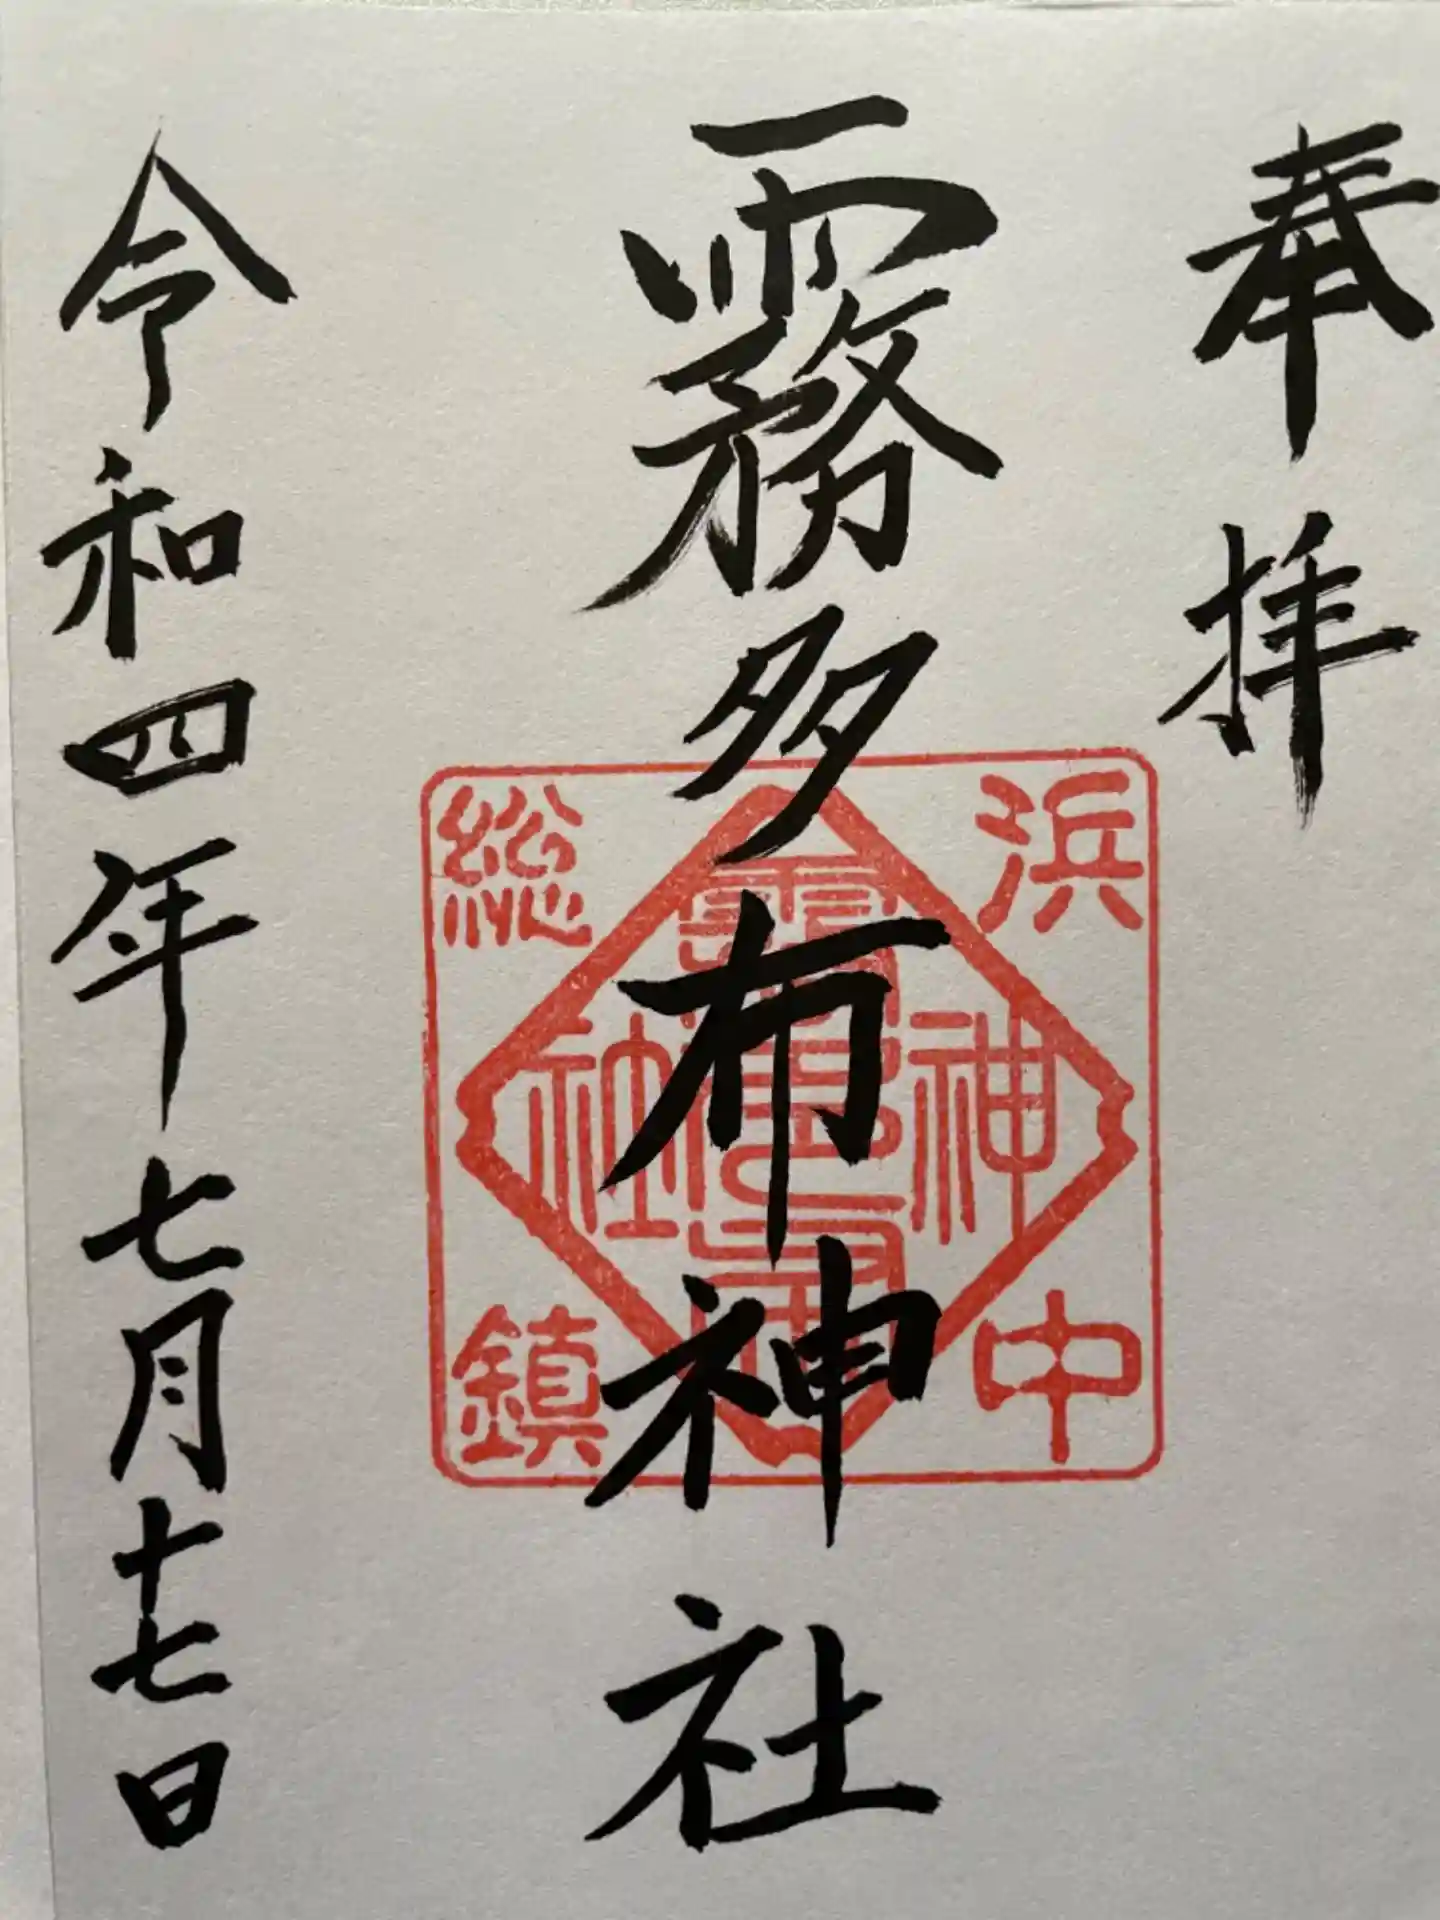 奉拝
霧多布神社
令和四年七月十七日
浜中
総鎮
神
社